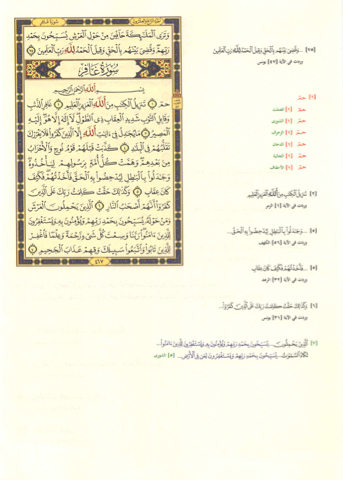 وَتَرَى الْمَلَٰٓئِكَةَ حَآفِّينَ مِنْ حَوْلِ الْعَرْشِ يُسَبِّحُونَ بِحَمْدِ
رَبِّهِمْ وَقُضِىَ بَيْنَهُم بِالْحَقِّ وَقِيلَ الْحَمْدُ لِلَّهِ رَبِّ الْعَٰلَمِينَ
سُورَةُ غَافِر
بِسْمِ اللَّهِ الرَّحْمَٰنِ الرَّحِيمِ
حمٓ تَنزِيلُ الْكِتَٰبِ مِنَ اللَّهِ الْعَزِيزِ الْعَلِيمِ غَافِرِ الذَّنبِ
وَقَابِلِ التَّوْبِ شَدِيدِ الْعِقَابِ ذِى الطَّوْلِ لَآ إِلَٰهَ إِلَّا هُوَ إِلَيْهِ
الْمَصِيرُ مَا يُجَٰدِلُ فِىٓ ءَايَٰتِ اللَّهِ إِلَّا الَّذِينَ كَفَرُوا۟ فَلَا يَغْرُرْكَ
تَقَلُّبُهُمْ فِى الْبِلَٰدِ كَذَّبَتْ قَبْلَهُمْ قَوْمُ نُوحٍ وَالْأَحْزَابُ
مِنۢ بَعْدِهِمْ وَهَمَّتْ كُلُّ أُمَّةٍۭ بِرَسُولِهِمْ لِيَأْخُذُوهُ
وَجَٰدَلُوا۟ بِالْبَٰطِلِ لِيُدْحِضُوا۟ بِهِ الْحَقَّ فَأَخَذْتُهُمْ فَكَيْفَ
كَانَ عِقَابِ وَكَذَٰلِكَ حَقَّتْ كَلِمَتُ رَبِّكَ عَلَى الَّذِينَ
كَفَرُوٓا۟ أَنَّهُمْ أَصْحَٰبُ النَّارِ الَّذِينَ يَحْمِلُونَ الْعَرْشَ
وَمَنْ حَوْلَهُۥ يُسَبِّحُونَ بِحَمْدِ رَبِّهِمْ وَيُؤْمِنُونَ بِهِۦ وَيَسْتَغْفِرُونَ
لِلَّذِينَ ءَامَنُوا۟ رَبَّنَا وَسِعْتَ كُلَّ شَىْءٍ رَّحْمَةً وَعِلْمًا فَاغْفِرْ
لِلَّذِينَ تَابُوا۟ وَاتَّبَعُوا۟ سَبِيلَكَ وَقِهِمْ عَذَابَ الْجَحِيمِ
٤٦٧
[٧٥] ...وَقُضِىَ بَيْنَهُم بِالْحَقِّ وَقِيلَ الْحَمْدُ لِلَّهِ رَبِّ الْعَٰلَمِينَ
[١] حمٓ
حمٓ [١] فصلت
حمٓ [١] الشورى
حمٓ [١] الزخرف
حمٓ [١] الدخان
حمٓ [١] الجاثية
حمٓ [١] الأحقاف
[٢] تَنزِيلُ الْكِتَٰبِ مِنَ اللَّهِ الْعَزِيزِ الْعَلِيمِ
وردت في الآية [١] الزمر
[٥] ...وَجَٰدَلُوا۟ بِالْبَٰطِلِ لِيُدْحِضُوا۟ بِهِ الْحَقَّ...
وردت في الآية [٥٦] الكهف
[٥] ...فَأَخَذْتُهُمْ فَكَيْفَ كَانَ عِقَابِ
وردت في الآية [٣٢] الرعد
[٦] وَكَذَٰلِكَ حَقَّتْ كَلِمَتُ رَبِّكَ عَلَى الَّذِينَ كَفَرُوٓا۟...
وردت في الآية [٣٣] يونس
[٧] الَّذِينَ يَحْمِلُونَ... يُسَبِّحُونَ بِحَمْدِ رَبِّهِمْ وَيُؤْمِنُونَ بِهِۦ وَيَسْتَغْفِرُونَ لِلَّذِينَ ءَامَنُوا۟...
تَكَادُ السَّمَٰوَٰتُ... يُسَبِّحُونَ بِحَمْدِ رَبِّهِمْ وَيَسْتَغْفِرُونَ لِمَن فِى الْأَرْضِ... [٥] الشورى